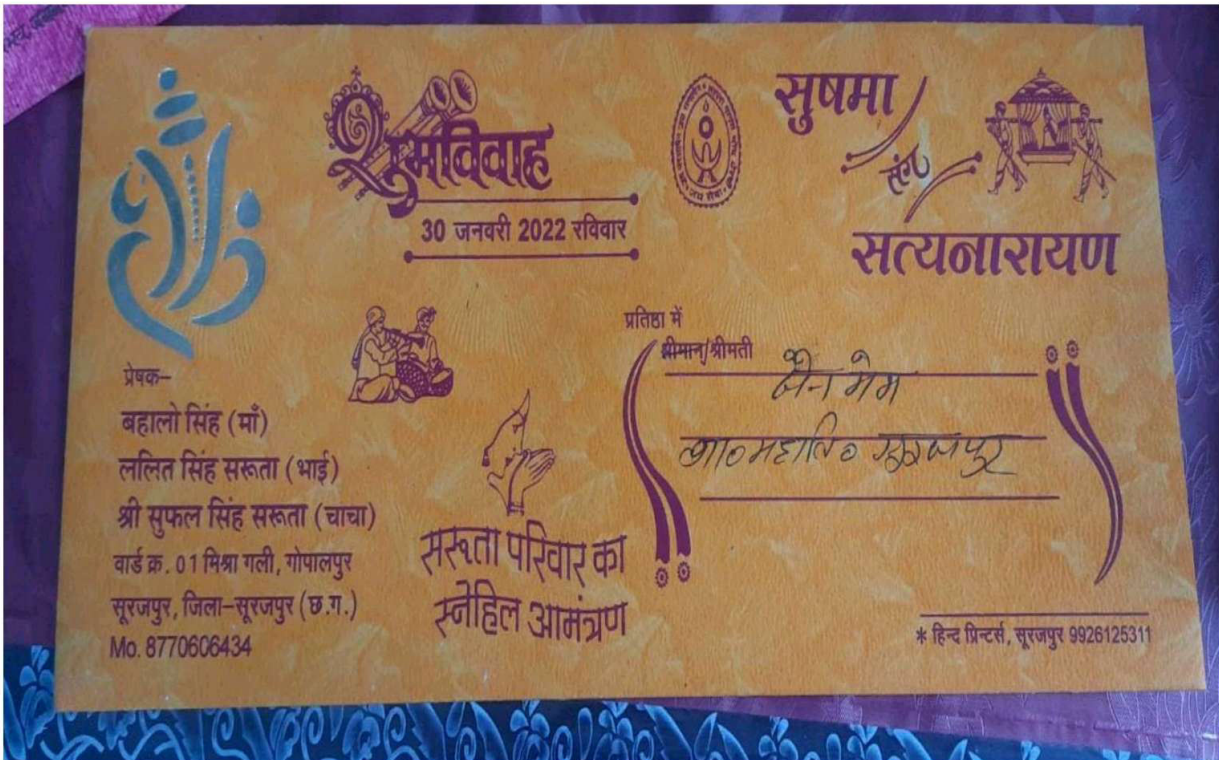 शुभविवाह
30 जनवरी 2022 रविवार
सुषमा
संग
सत्यनारायण
प्रतिष्ठा में
श्रीमान/श्रीमती
जैन मेम
शा० महावि० सूरजपुर
प्रेषक–
बहालो सिंह (माँ)
ललित सिंह सरूता (भाई)
श्री सुफल सिंह सरूता (चाचा)
वार्ड क्र. 01 मिश्रा गली, गोपालपुर
सूरजपुर, जिला–सूरजपुर (छ.ग.)
Mo. 8770606434
सरूता परिवार का
स्नेहिल आमंत्रण
* हिन्द प्रिन्टर्स, सूरजपुर 9926125311